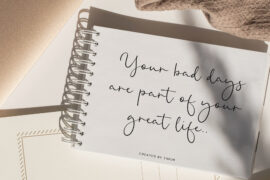 Your bad days
are part of your
great life..
CREATED BY YUSUF